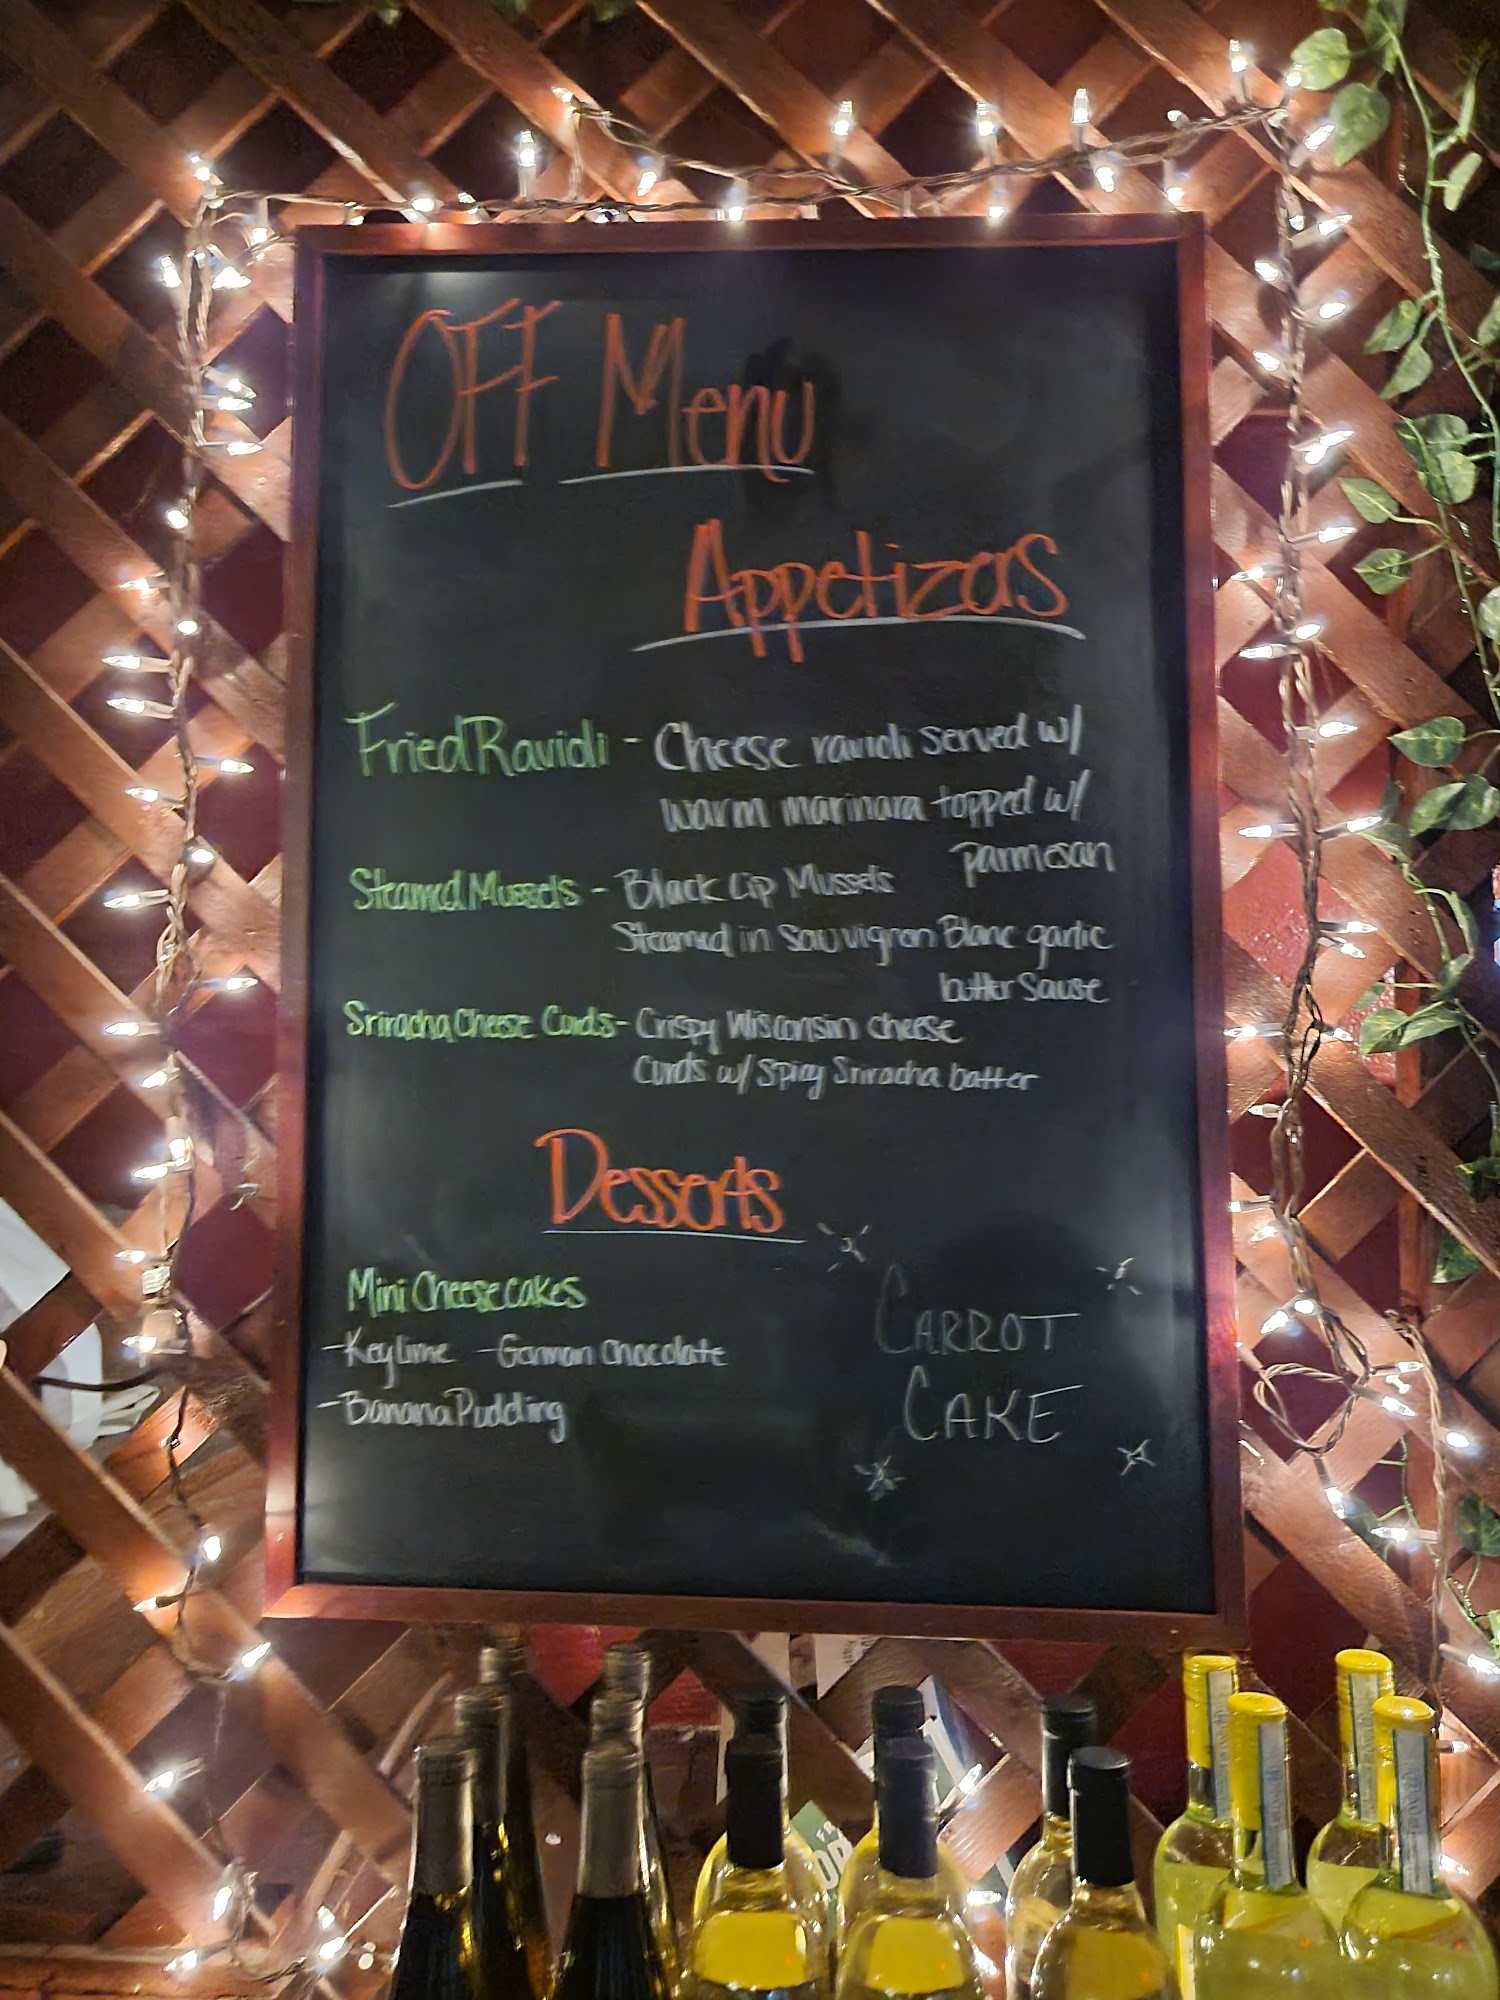 OFF Menu
Appetizers
Fried Ravioli - Cheese ravioli served w/
warm marinara topped w/
parmesan
Steamed Mussels - Black Lip Mussels
Steamed in Sauvignon Blanc garlic
butter Sause
Sriracha Cheese Curds - Crispy Wisconsin cheese
Curds w/ Spicy Sriracha batter
Desserts
Mini Cheesecakes
- Key lime - German chocolate
- Banana Pudding
CARROT
CAKE